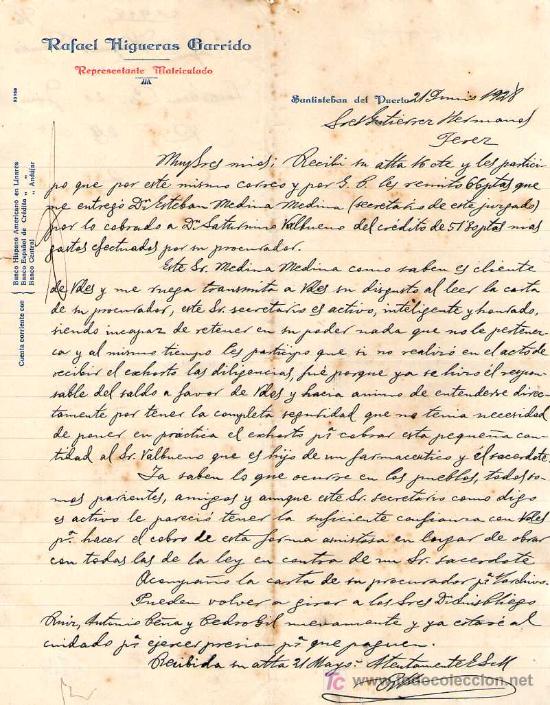 Rafael Higueras Garrido
Representante Matriculado
Santisteban del Puerto 21 Junio 1928
Sres Gutierrez Hermanos
Jerez
Cuenta corriente con
Banco Hispano Americano en Linares
Banco Español de Crédito „ „
Banco Central „ Andújar
Muy Sres mios; Recibi su atta 16 cte y les partici
po que por este mismo correo y por G. P. les remito 66 ptas que
me entregó Dn Esteban Medina Medina (secretario de este juzgado)
por lo cobrado a Dn Saturnino Valbueno del crédito de 51'80 ptas mas
gastos efectuados por su procurador.
Este Sr. Medina Medina como saben es cliente
de Vdes y me ruega transmita a Vdes su disgusto al leer la carta
de su procurador, este Sr. secretario es activo, inteligente y honrado,
siendo incapaz de retener en su poder nada que no le pertenez
ca y al mismo tiempo les participo que si no realizó en el acto de
recibir el exhorto las diligencias, fué porque ya se hizo el respon
sable del saldo a favor de Vdes y hacia animo de entenderse direc
tamente por tener la completa seguridad que no tenia necesidad
de poner en práctica el exhorto pa cobrar esta pequeña can
tidad al Sr. Valbueno que es hijo de un farmaceutico y el sacerdote.
Ya saben lo que ocurre en los pueblos, todos so
mos parientes, amigos y aunque este Sr. secretario como digo
es activo le pareció tener la suficiente confianza con Vdes
pa hacer el cobro de esta forma amistosa en lugar de obrar
con todas las de la ley en contra de un Sr. sacerdote
Acompaño la carta de su procurador pa Varchivo.
Pueden volver a girar a los Sres Dn Luis Pliego
Ruiz, Antonio Peña y Pedro Gil nuevamente y ya estaré al
cuidado pa ejercer presion pa que paguen.
Recibida su atta 21 Mayo. Atentamente E.S.M
todocoleccion.net